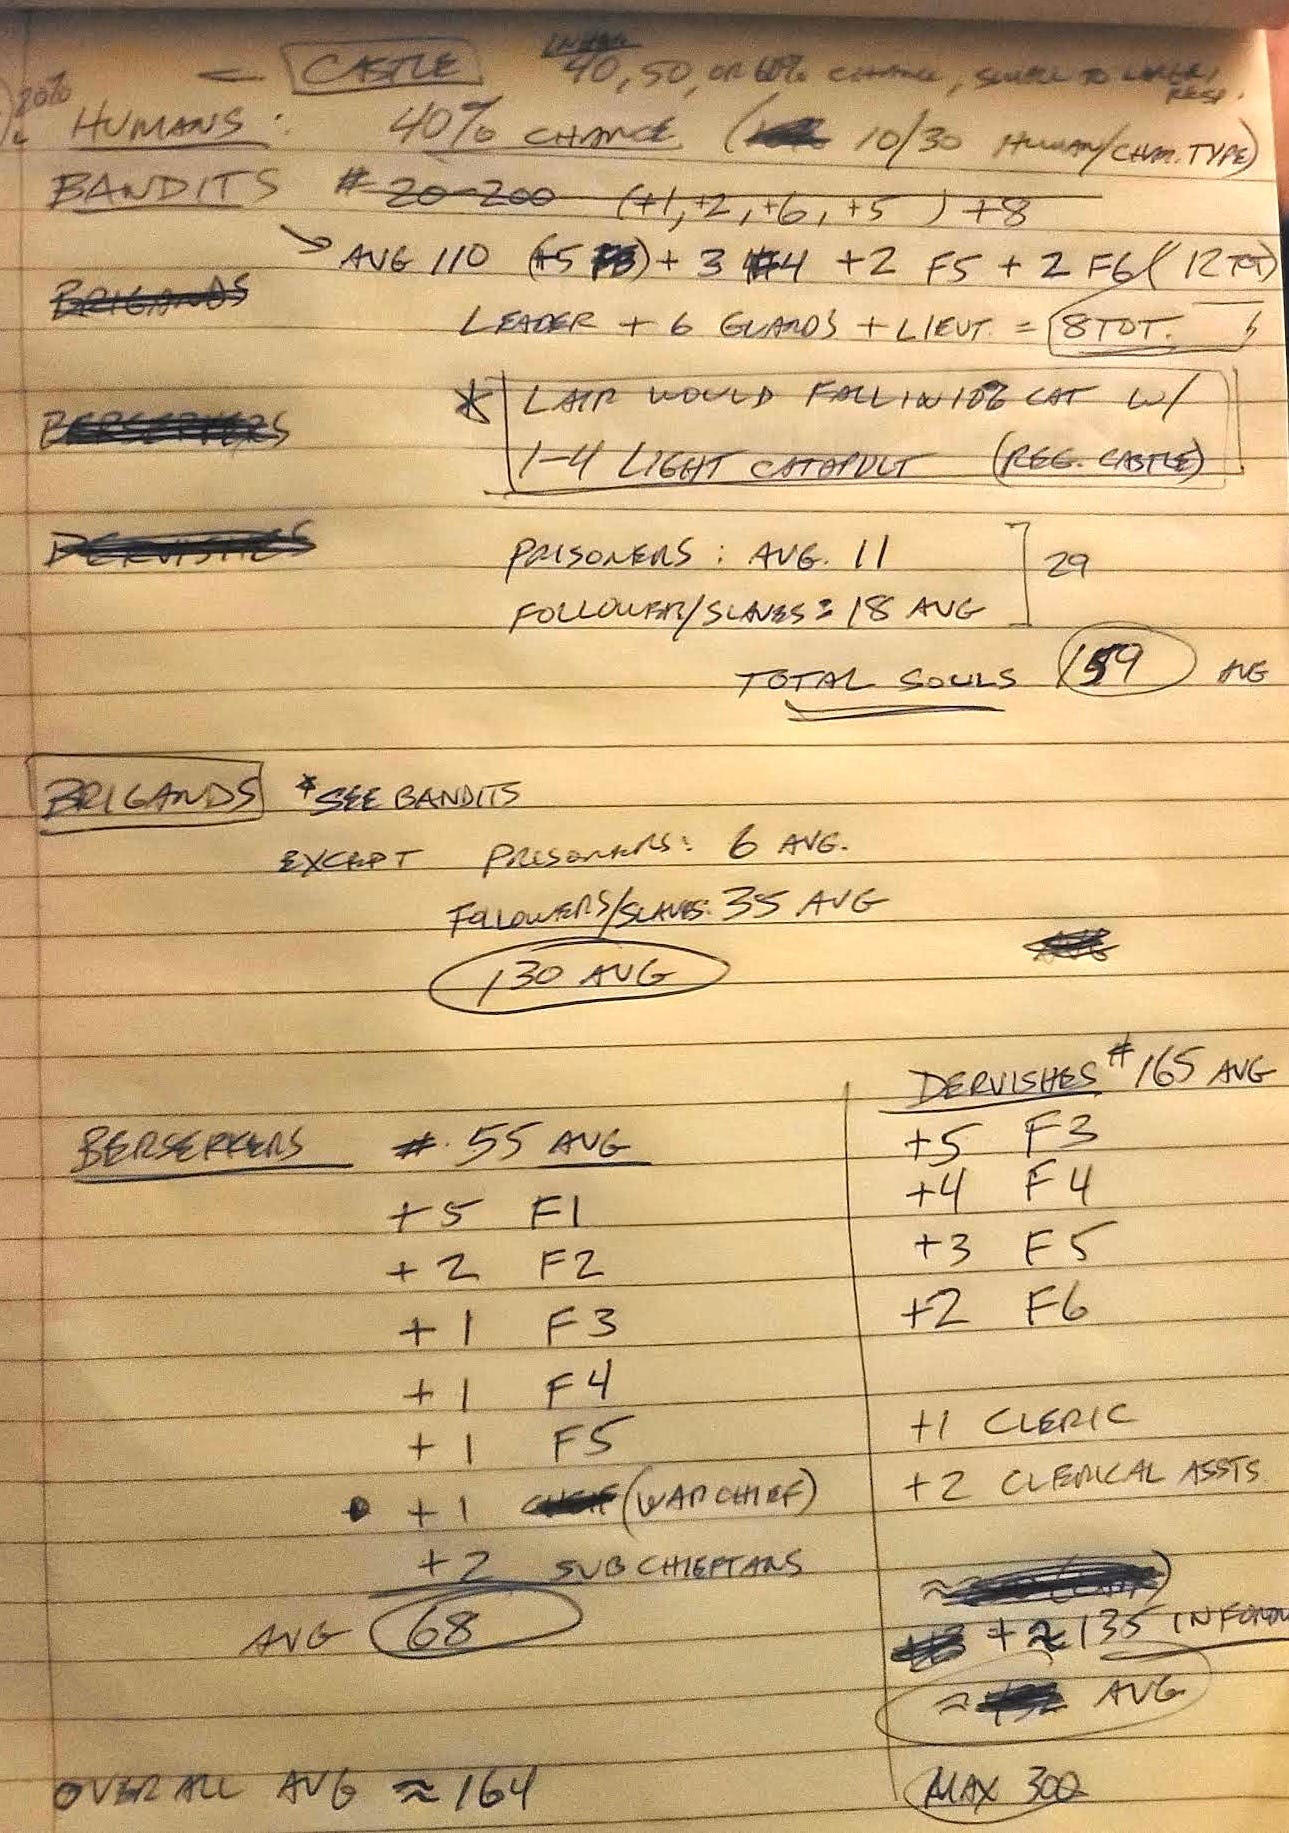 20%
← CASTLE 40, 50, OR 60% CHANCE, SMALL TO LARGE, RESP.
HUMANS: 40% CHANCE ( 10/30 HUMAN/CHAR. TYPE)
BANDITS # 20-200 (+1, +2, +6, +5 ) +8
→ AVG 110 (+5 F3) + 3 F4 +2 F5 + 2 F6 (12 TOT)
BRIGANDS
LEADER + 6 GUARDS + LIEUT. = 8 TOT.
* LAIR WOULD FALL IN 10% CAT W/
BERSERKERS
1-4 LIGHT CATAPULT (REG. CASTLE)
DERVISHES
PRISONERS: AVG. 11
29
FOLLOWER/SLAVES: 18 AVG
TOTAL SOULS 159 AVG
BRIGANDS *SEE BANDITS
EXCEPT PRISONERS: 6 AVG.
FOLLOWERS/SLAVES: 35 AVG
130 AVG
BERSERKERS #. 55 AVG
+5 F1
+2 F2
+1 F3
+1 F4
+1 F5
• +1 (WARCHIEF)
+2 SUBCHIEFTANS
AVG 68
OVERALL AVG ≈ 164
DERVISHES # 165 AVG
+5 F3
+4 F4
+3 F5
+2 F6
+1 CLERIC
+2 CLERICAL ASSTS
+≈ 135 IN FORM
≈ AVG
MAX 300